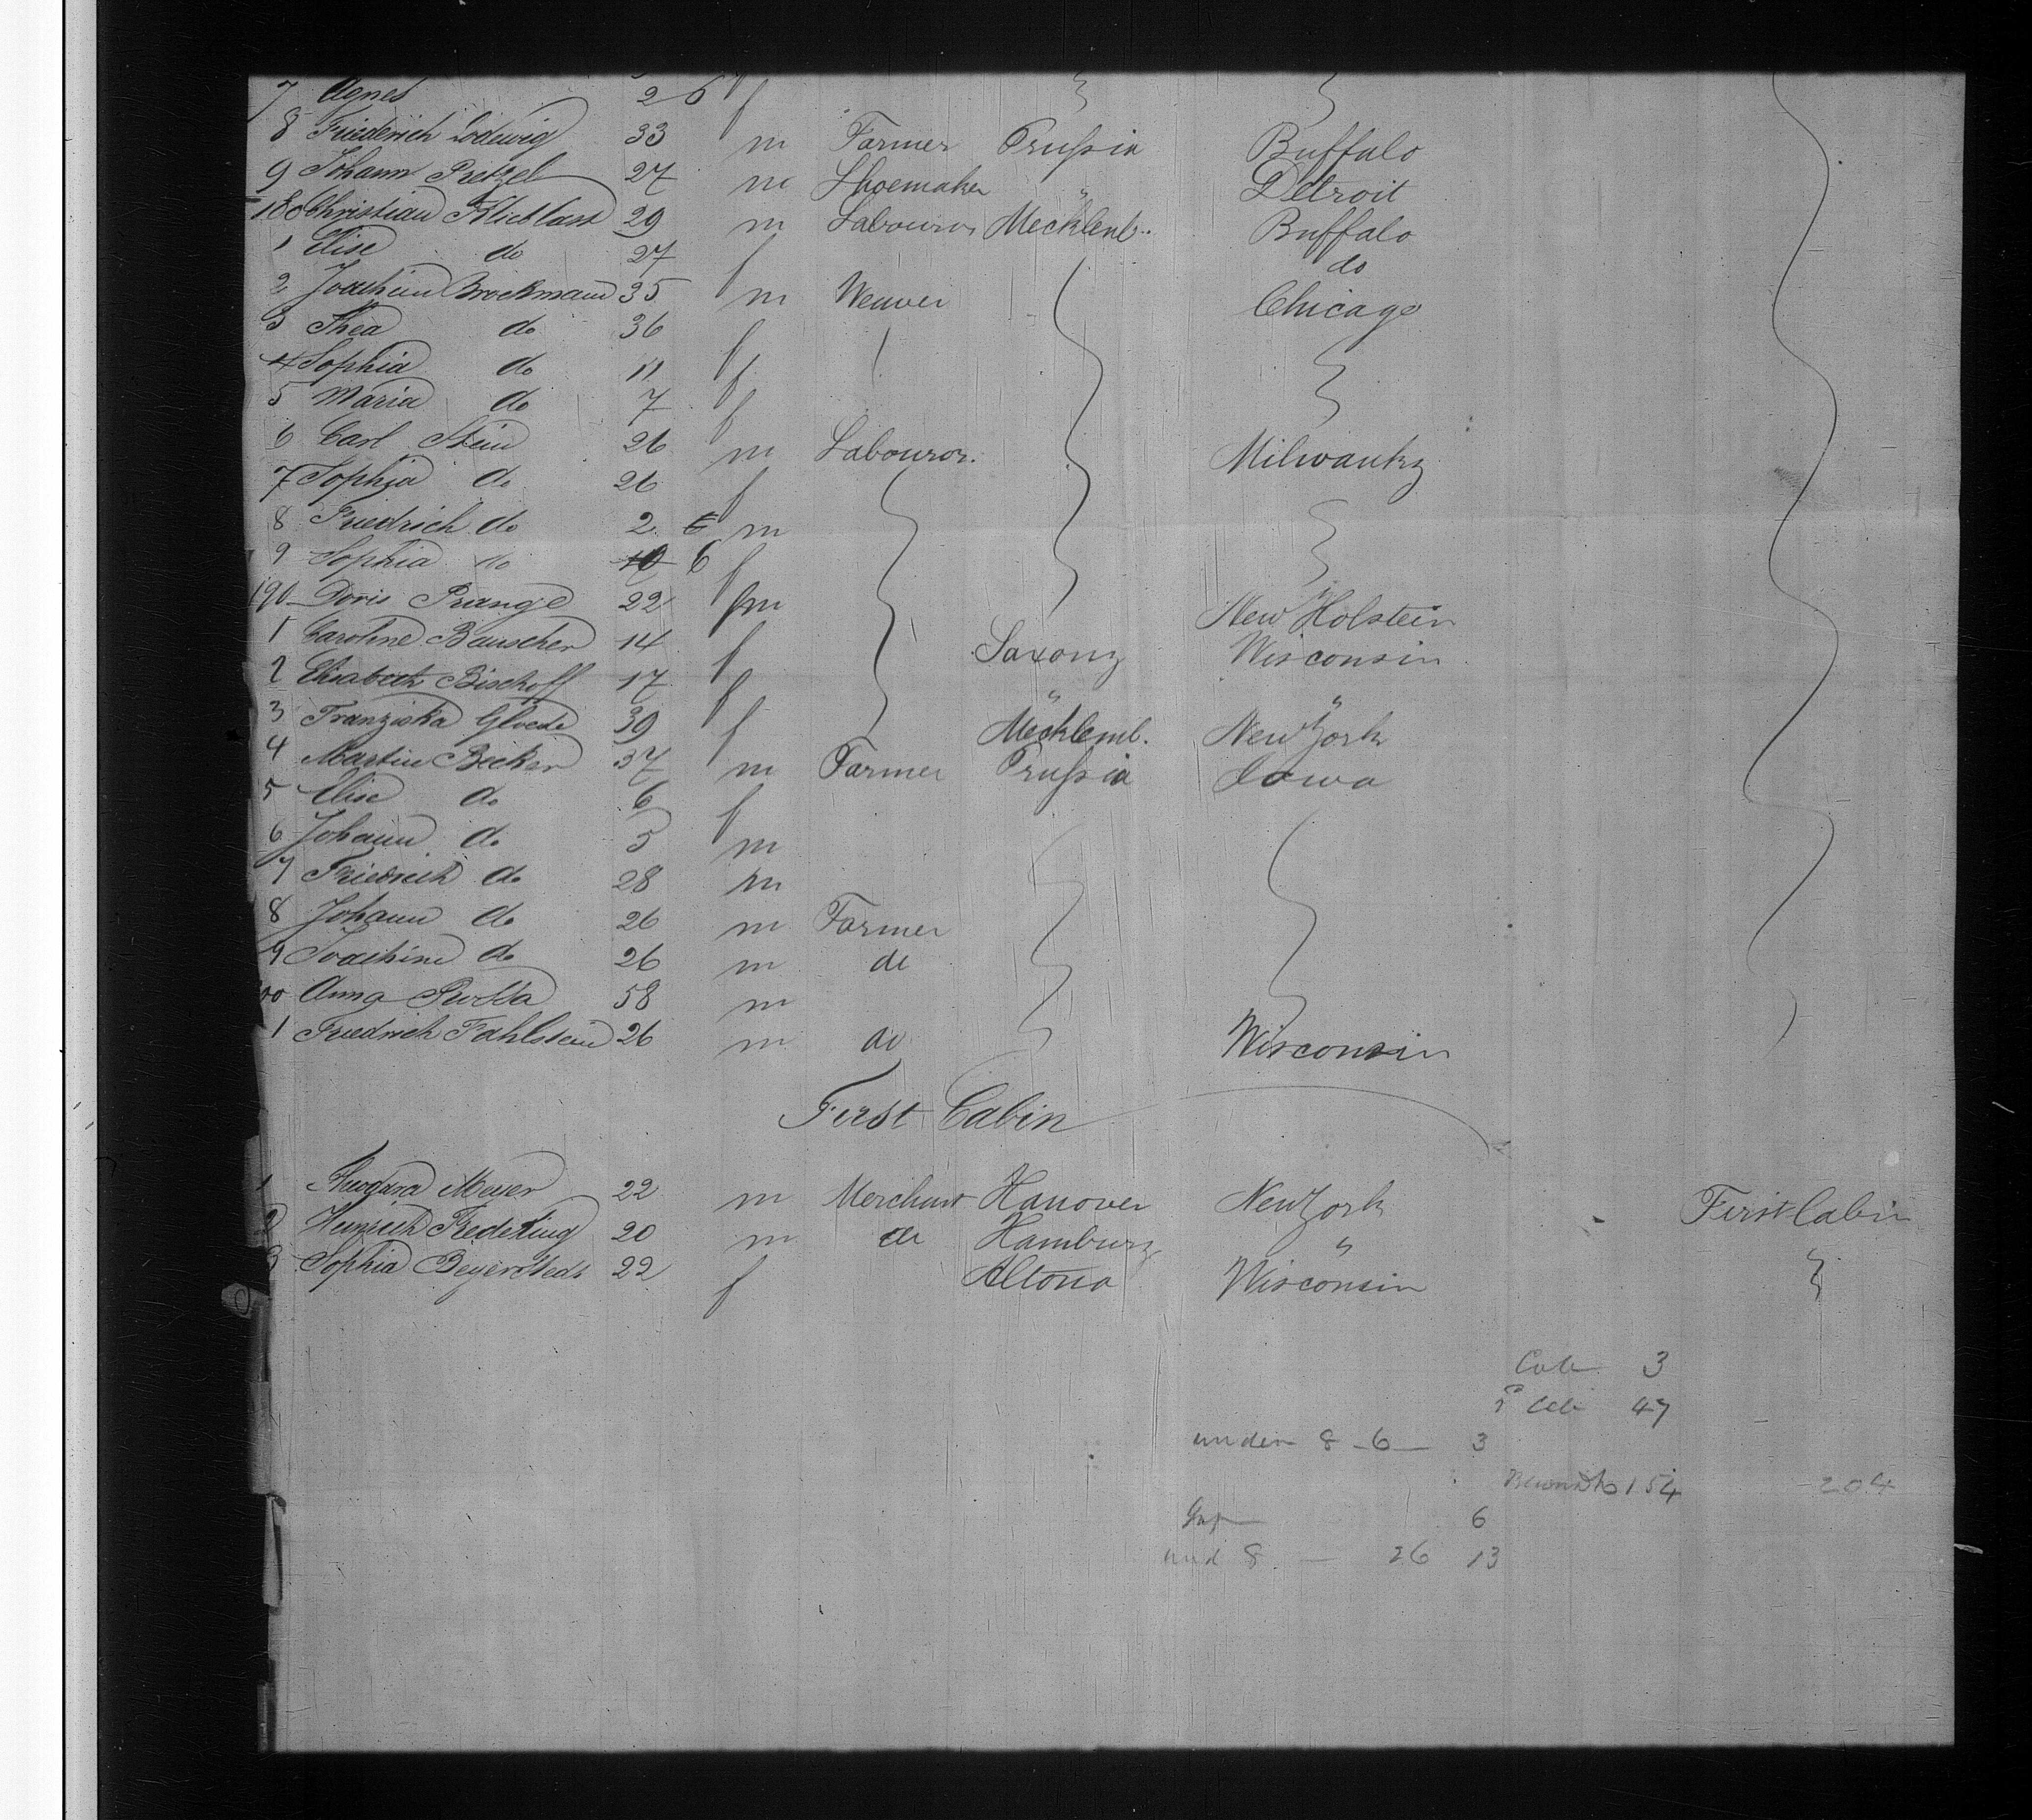 7 Agnes 2 6 f
8 Friederich Lodewig 33 m Farmer Prussia Buffalo
9 Johann Pretzel 27 m Shoemaker " Detroit
180 Christian 29 m Labouror Mecklenb. Buffalo
1 Elise do 27 f do
2 Joachim Brockmann 35 m Weaver Chicago
3 Thea do 36 f
4 Sophia do 11 f
5 Maria do 7 f
6 Carl Stein 26 m Labouror. Milwauky
7 Sophia do 26 f
8 Friedrich do 2 6 m
9 Sophia do 6 f
190 Doris Prange 22 fm New Holstein
1 Caroline Bauscher 14 f Saxony Wisconsin
2 Elisabeth Bischoff 17 f " "
3 Franziska Gloede 39 f Mecklemb. New York
4 Martin Becker 37 m Farmer Prussia Iowa
5 Elise do 6 f
6 Johann do 5 m
7 Friedrich do 28 m
8 Johann do 26 m Farmer
9 Joachim do 26 m do
200 Anna 58 m
1 Friedrich Fahlstein 26 m do Wisconsin
First Cabin
1 Meyer 22 m Merchant Hanover New York First Cabin
2 Heinrich Fredeking 20 m do Hamburg "
3 Sophia Beyerstedt 22 f Altona Wisconsin
Cab 3
2 Cab 47
under 8 - 6 — 3
154 204
6
und 8 — 26 13